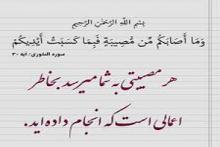 بِسْمِ اللَّهِ الرَّحْمَنِ الرَّحِيمِ
وَمَا أَصَابَكُمْ مِّن مُّصِيبَةٍ فَبِمَا كَسَبَتْ أَيْدِيكُمْ
سوره الشوری: آیه ۳۰
هر مصیبتی به شما میرسد بخاطر
اعمالی است که انجام داده‌اید.